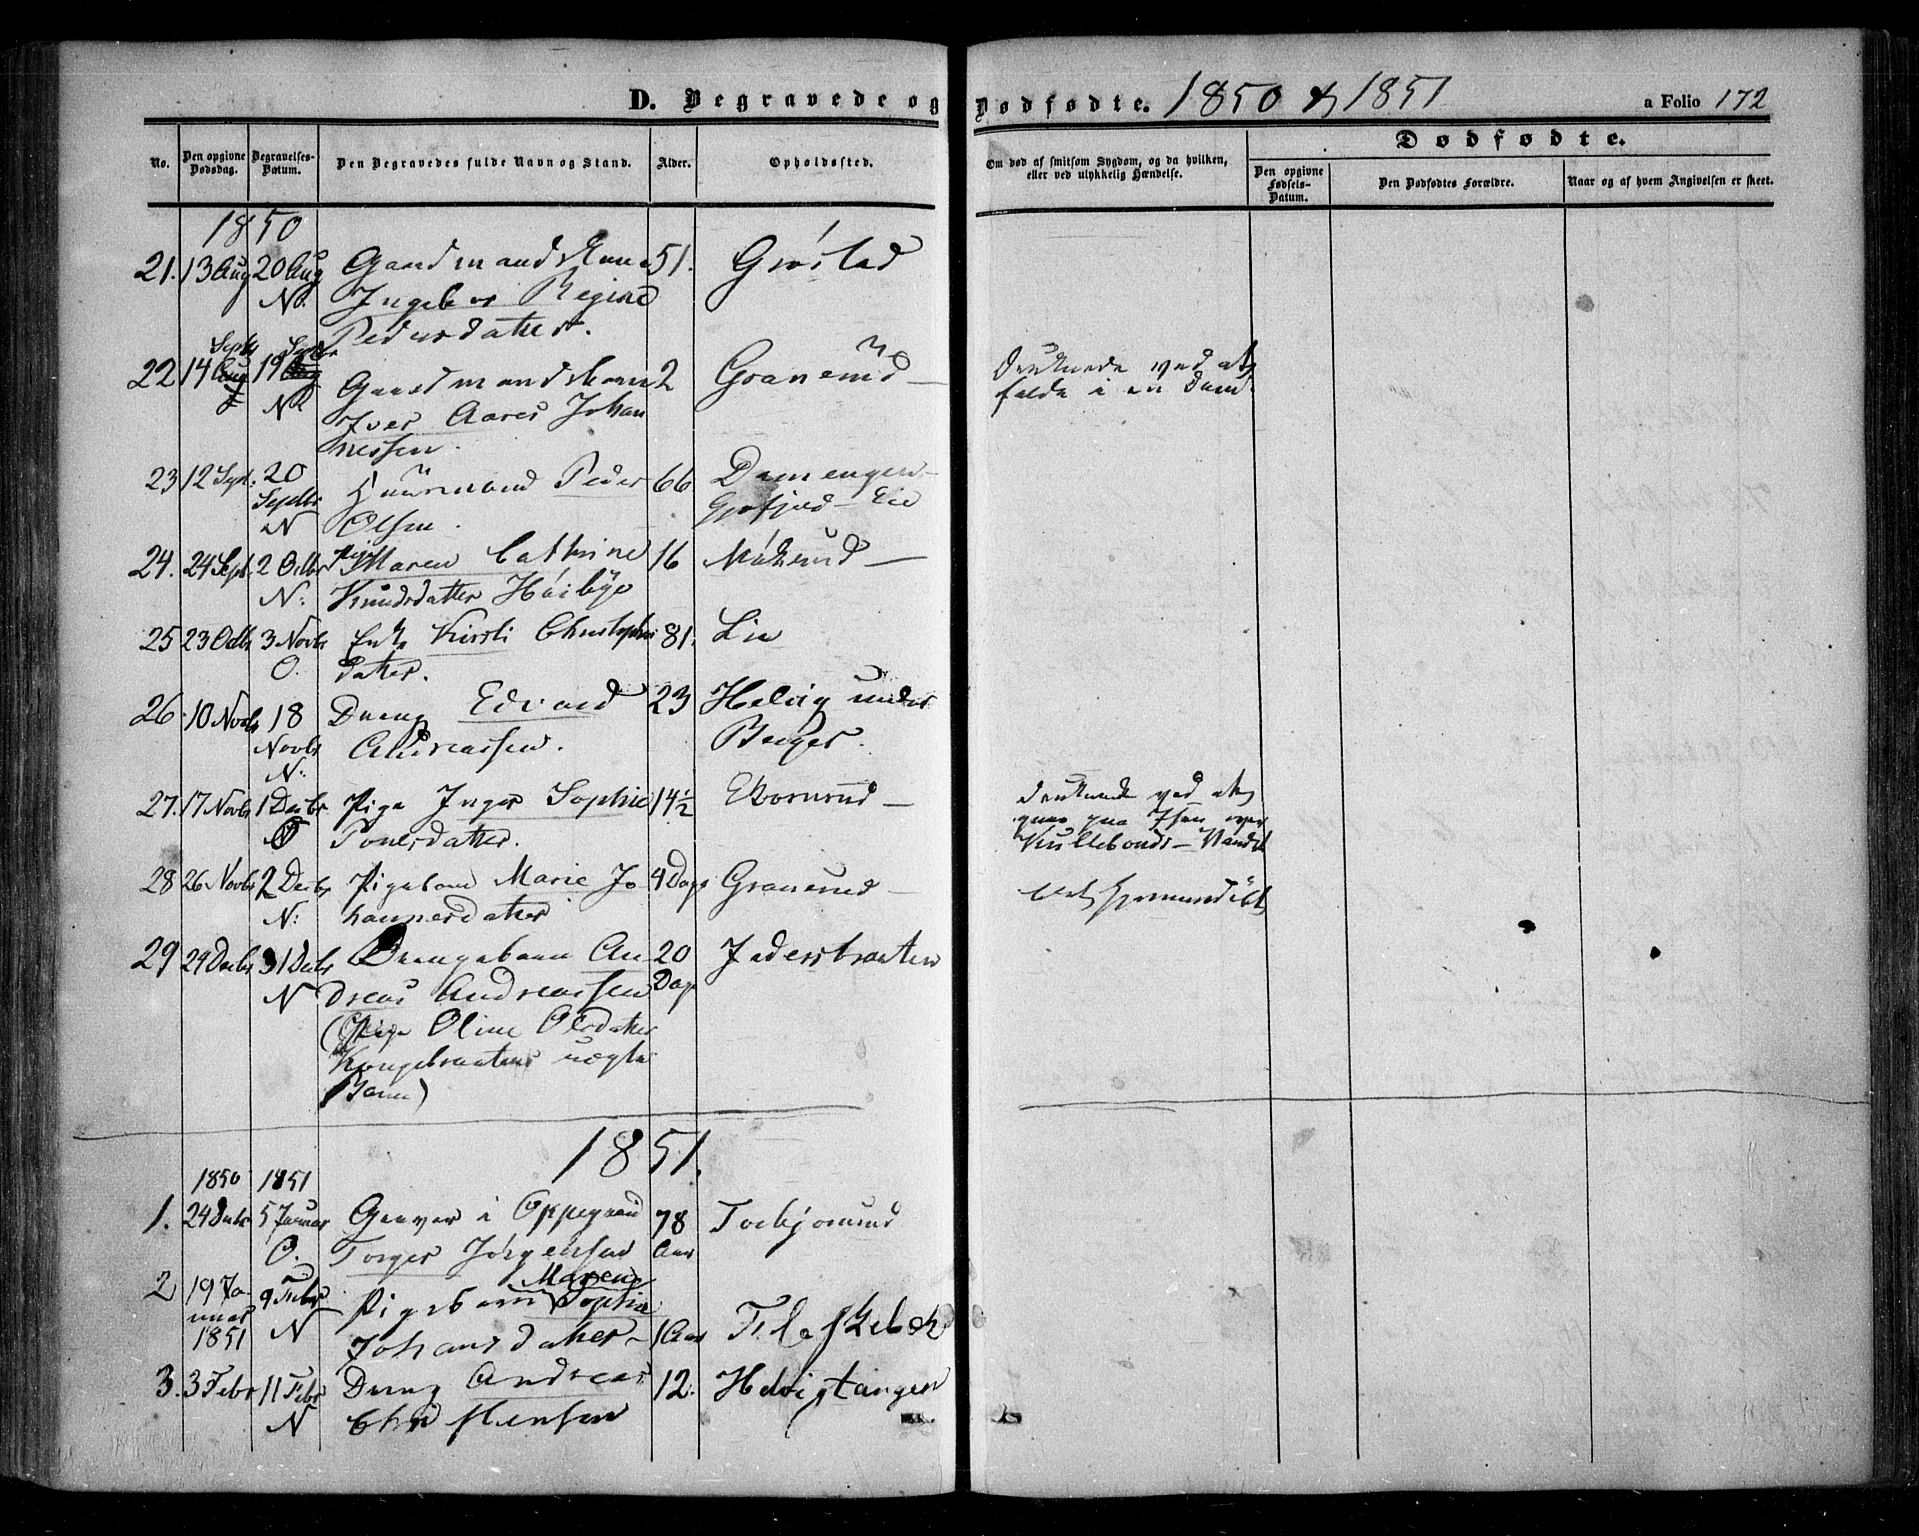 D. Begravede og Dødfødte. 1850 & 1851 a Folio 172
No. Den opgivne Dødsdag. Begravelses-Datum. Den Begravedes fulde Navn og Stand. Alder. Opholdssted. Om død af smitsom Sygdom, og da hvilken, eller ved ulykkelig Hændelse. Dødfødte.
Den opgivne Fødsels-Datum. Den Dødfødtes Forældre. Naar og af hvem Angivelsen er skeet.
1850
21. 13 Aug 20 Aug Gaardmandskone 51. Gróstad
N. Ingebor Regine
Pedersdatter.
22 14 Septb 19 Septbr Gaardmandsbarn 2 Granerud
N Iver Aares Johan
nessen.
Druknede ved at
falde i en Dam
23 12 Sept. 20 Huusmand Peder 66 Damengen
Septbr Olsen.
N
24. 24 Sept. 2 Octbr Pige Maren Cathrine 16 Mókerud
N: Knudsdatter Hóibye
25 23 Octbr 3 Novbr Enke Kirsti Christophers 81. Lie
O. datter.
26 10 Novbr 18 Dreng Edvard 23 Helvig under
Novbr Andreassen. Berger.
N:
27. 17 Novbr 1 Decbr Pige Inger Sophie 14½ Ekornrud
O Povelsdatter.
druknede ved at
gaae paa Isen over
Kullebonds-Vandet
28 26 Novbr 2 Decbr Pigebarn Marie Jo 4 Dage Granerud
N: hannesdatter
29 24 Decbr 31 Decbr Drengebarn An 20 Jaderstraaten
N dreas Andreassen Dage
(Pige Oline Olsdatter
Kongebraatens uægte
Barn)
1851.
1850 1851
1. 24 Decbr 5 Januar Graver i Oppegaard 78 Torbjornrud
O. Torger Jórgensen Aar
2 19 Ja- 9 Febr Pigebarn Maren Sophie
nuar N Johansdatter 1 Aar Fl. af Skebek
1851
3. 3 Febr 11 Febr Dreng Andreas 12. Helvigtangen
N Christensen